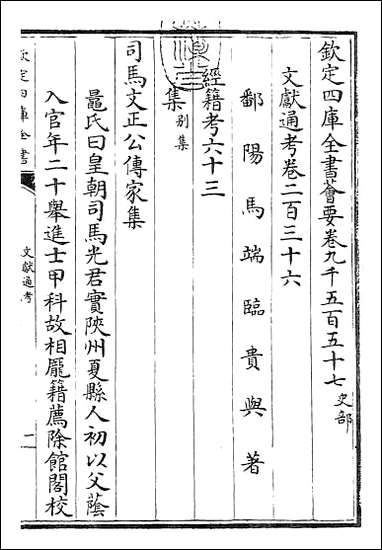 欽定四庫全書薈要卷九千五百五十七 史部
文獻通考卷二百三十六
鄱陽馬端臨貴與著
經籍考六十三
集 别集
司馬文正公傳家集
鼂氏曰皇朝司馬光君實陝州夏縣人初以父蔭
入官年二十舉進士甲科故相龎籍薦除館閣校
欽定四庫全書
文獻通考